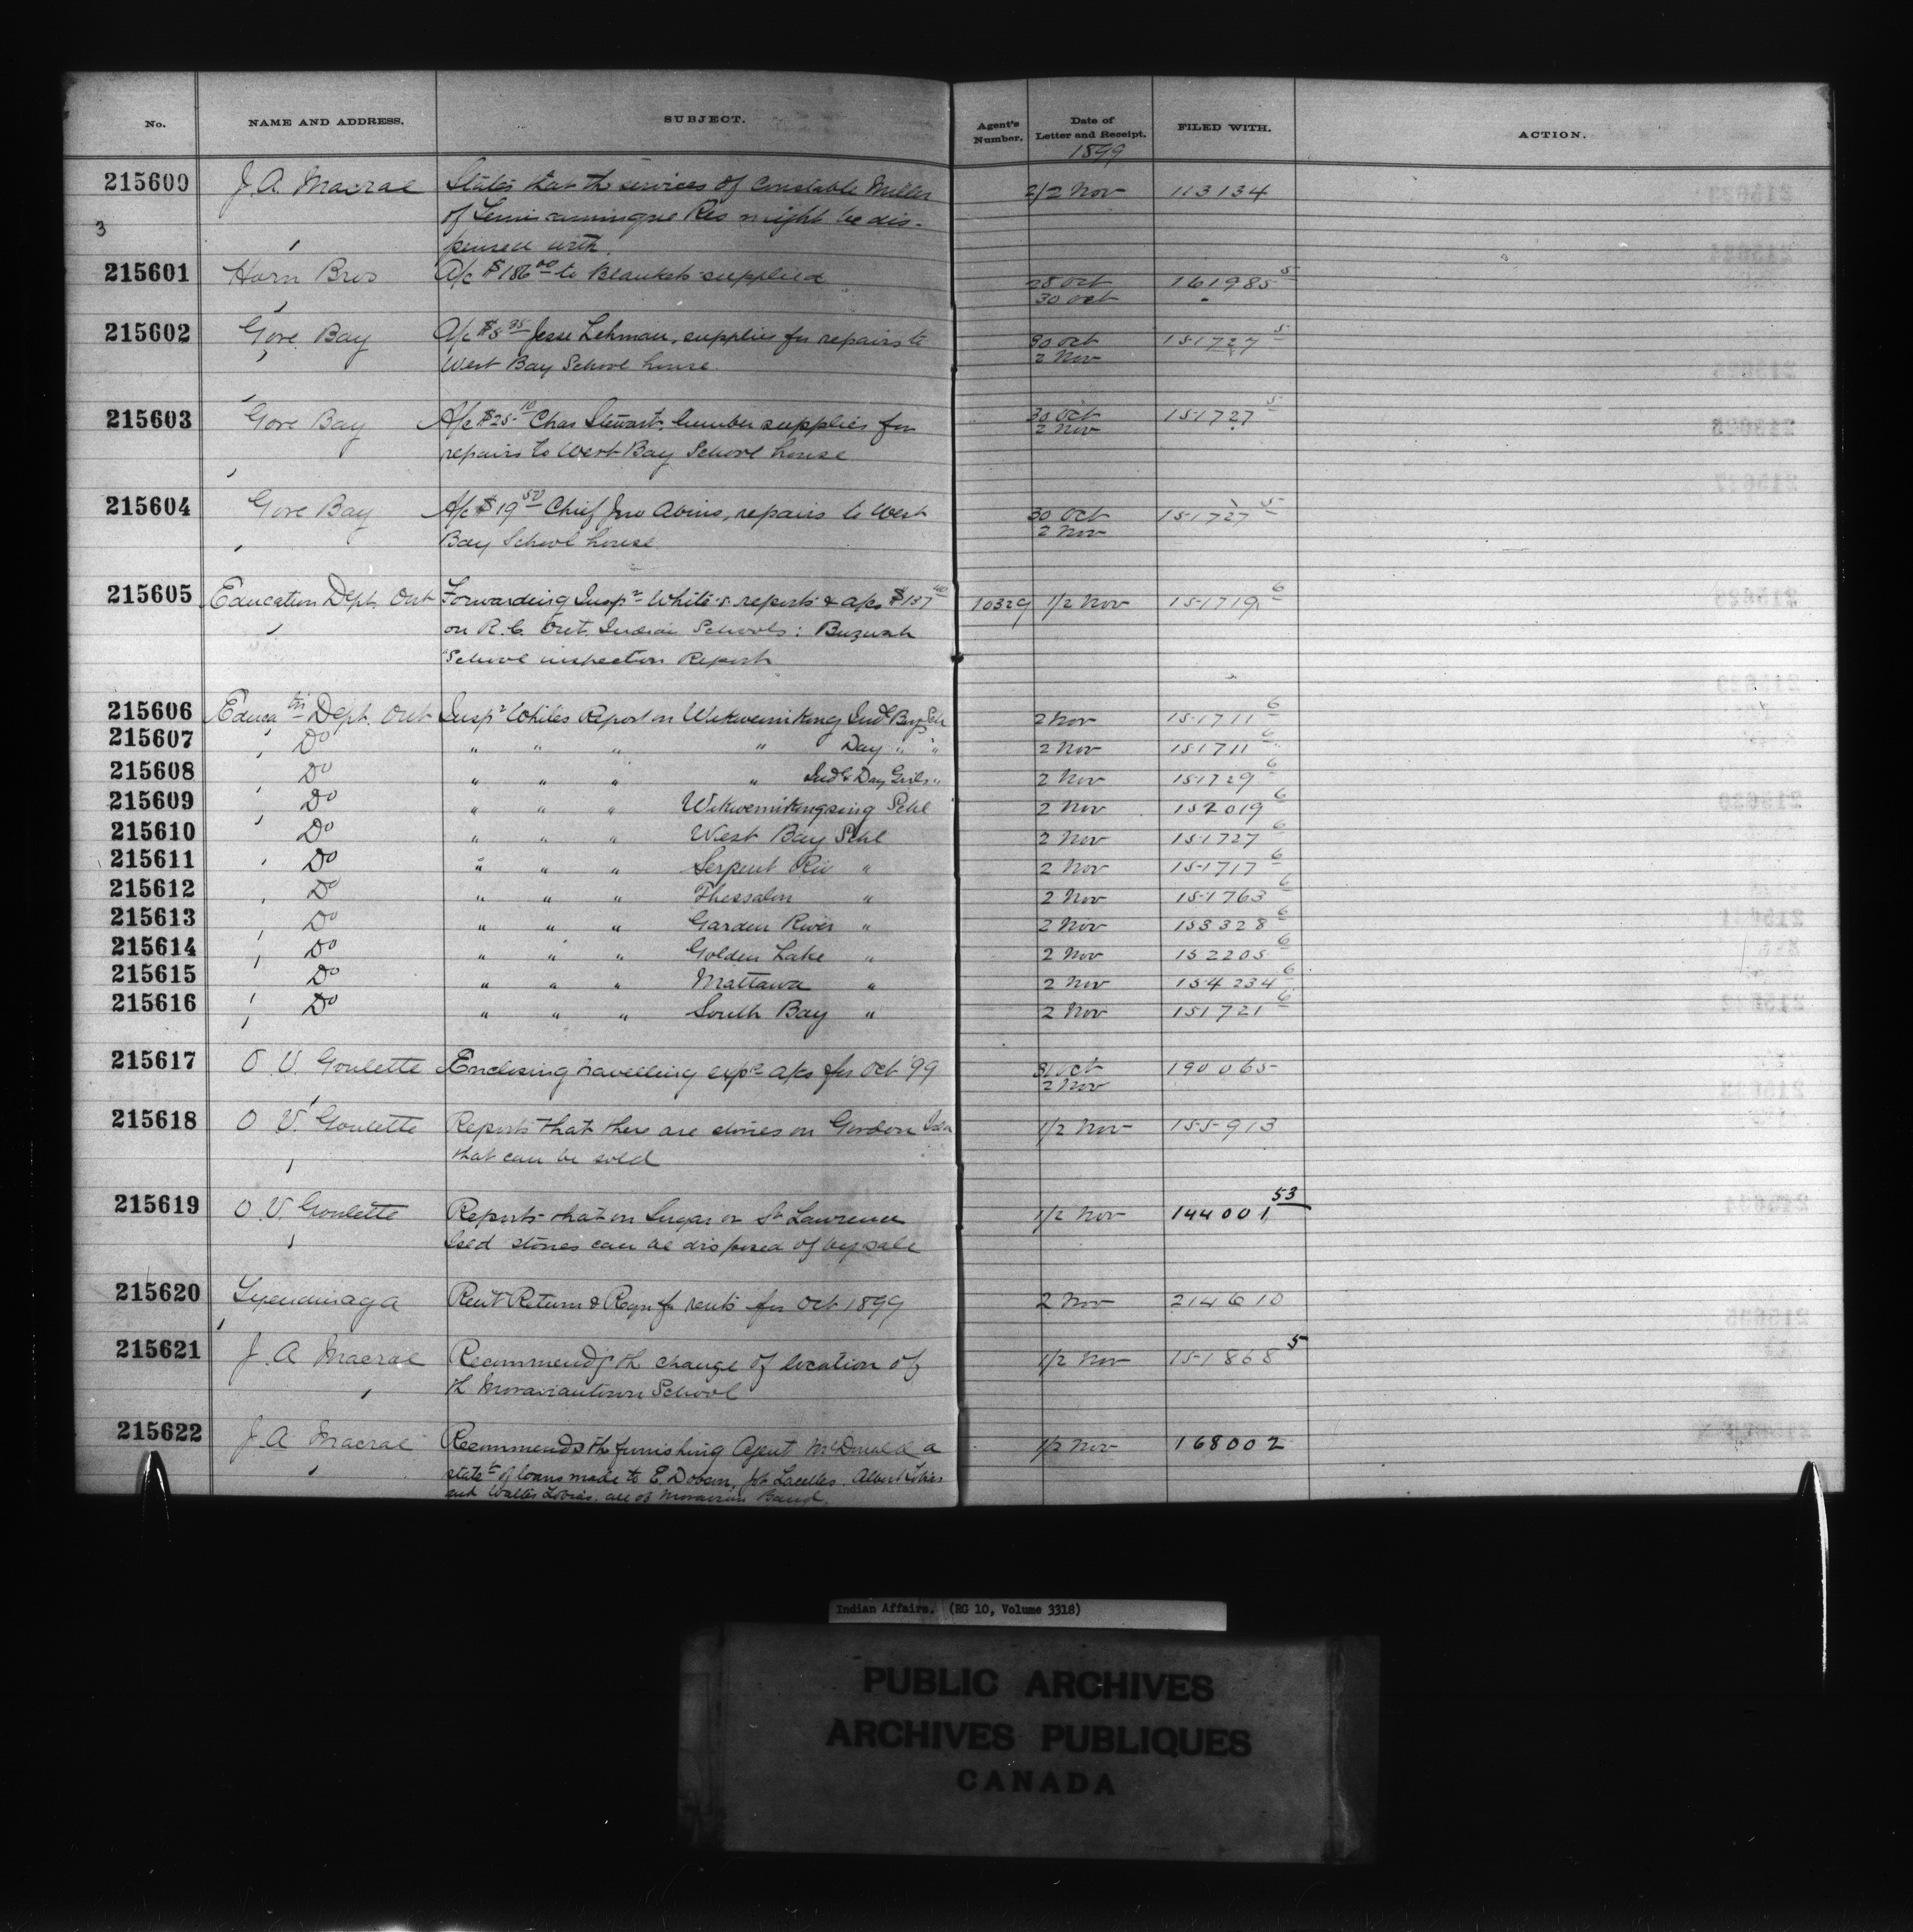 No. NAME AND ADDRESS. SUBJECT. Agent's Number. Date of Letter and Receipt. FILED WITH. ACTION.
1899
215600 J. A. Macrae States that the services of Constable Miller 2/2 Nov 113134
of Temiscamingue Res might be dis-
3
pensed with.
215601 Horn Bros A/c $186.00 to Blankets supplied 28 Oct 161985 5
30 Oct
215602 Gore Bay A/c $8 95 Jesse Lehman, supplies for repairs to 30 Oct 151727 5
West Bay School house. 2 Nov
215603 Gore Bay A/c $25 10 Chas Stewart, lumber supplies for 30 Oct 151727 5
repairs to West Bay School house. 2 Nov
215604 Gore Bay A/c $19 50 Chief Jno Abins, repairs to West 30 Oct 151727 5
Bay School house. 2 Nov
215605 Education Dept. Ont Forwarding Inspr White's reports & a/cs $137 40 10329 1/2 Nov 151719 6
on R. C. Ont. Indian Schools: Buzwah
School inspection Report
215606 Educatn Dept. Ont Inspr Whites Report on Wikwemikong Indl Boys Schl 2 Nov 151711 6
215607 Do " " " " Day " " 2 Nov 151711 6
215608 Do " " " " Indl & Day Girls " 2 Nov 151729 6
215609 Do " " " Wikwemikongsing Schl 2 Nov 152019 6
215610 Do " " " West Bay Schl 2 Nov 151727 6
215611 Do " " " Serpent Riv " 2 Nov 151717 6
215612 Do " " " Thessalon " 2 Nov 151763 6
215613 Do " " " Garden River " 2 Nov 153328 6
215614 Do " " " Golden Lake " 2 Nov 152205 6
215615 Do " " " Mattawa " 2 Nov 154234 6
215616 Do " " " South Bay " 2 Nov 151721 6
215617 O. V. Goulette Enclosing travelling exps a/cs for Oct '99 31 Oct 190065
2 Nov
215618 O. V. Goulette Reports that there are stones on Gordon Isld 1/2 Nov 155913
that can be sold
215619 O. V. Goulette Reports that on Sugar or St Lawrence 1/2 Nov 144001 53
Isld stones can be disposed of by sale
215620 Tyendinaga Rent Return & Reqn for rents for Oct 1899 2 Nov 214610
215621 J. A. Macrae Recommendg th change of location of 1/2 Nov 151868 5
th Moraviantown School
215622 J. A. Macrae Recommends th furnishing Agent McDonald a 1/2 Nov 168002
statet of loans made to E. Dobson, Lacelles. Albert Tobias
and Walter Tobias. all of Moravian Band.
Indian Affairs. (RG 10, Volume 3318)
PUBLIC ARCHIVES
ARCHIVES PUBLIQUES
CANADA